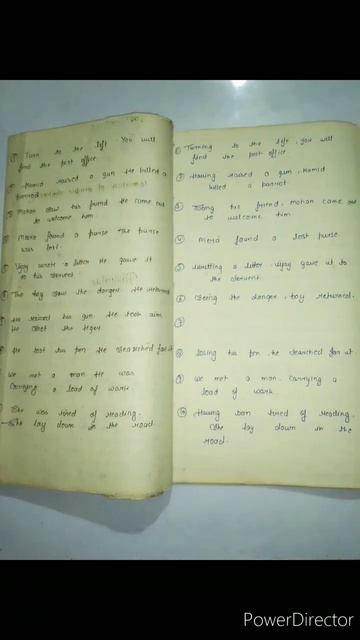 ① Turn to the left. You will
find the post office.
② Hamid raised a gun. He killed a
③ Mohan saw his friend. He came out
to welcome him.
④ Meera found a purse. The purse
was lost.
⑤ Vijay wrote a letter. He gave it
to his servant.
⑥ The boy saw the danger. He returned
He raised his gun. He took aim.
He shot the tiger.
He lost his pen. He searched for it
We met a man. He was
Carrying a load of wood.
She was tired of reading.
She lay down on the road.
① Turning to the left, you will
find the post office.
② Having raised a gun, Hamid
killed a
③ his friend, mohan came out
to welcome him.
④ Meera found a lost purse.
⑤ a letter, vijay gave it to
the servant.
⑥ Seeing the danger, boy returned.
⑦
⑧ losing his pen, he searched for it
⑨ We met a man, carrying a
load of
⑩ Having ban tired of reading.
She lay down in the
road.
PowerDirector